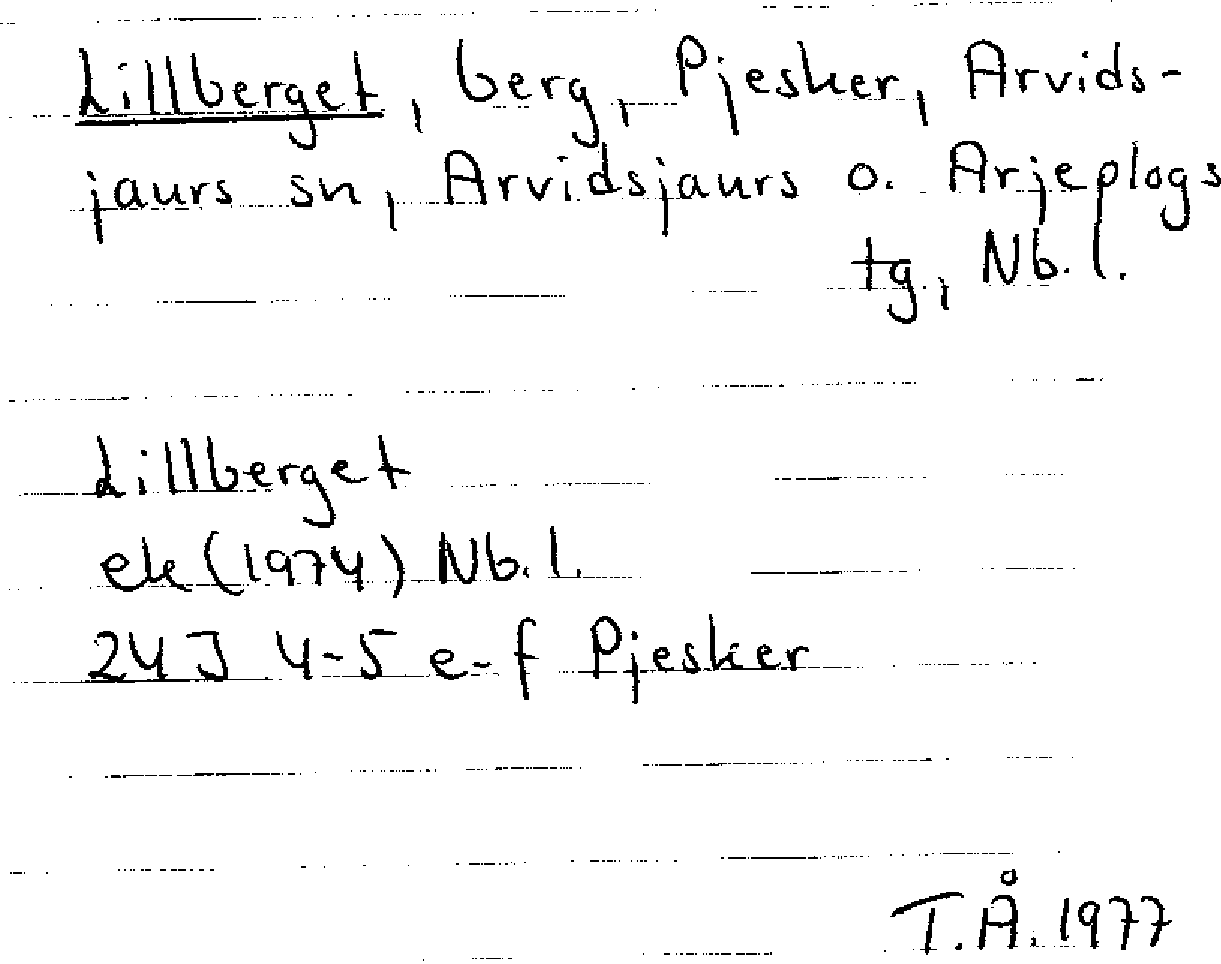 Lillberget, berg, Pjesker, Arvids-
jaurs sn, Arvidsjaurs o. Arjeplogs
tg, Nb. l.
Lillberget
ek (1974) Nb. l.
24J 4-5 e-f Pjesker
T.Å. 1977